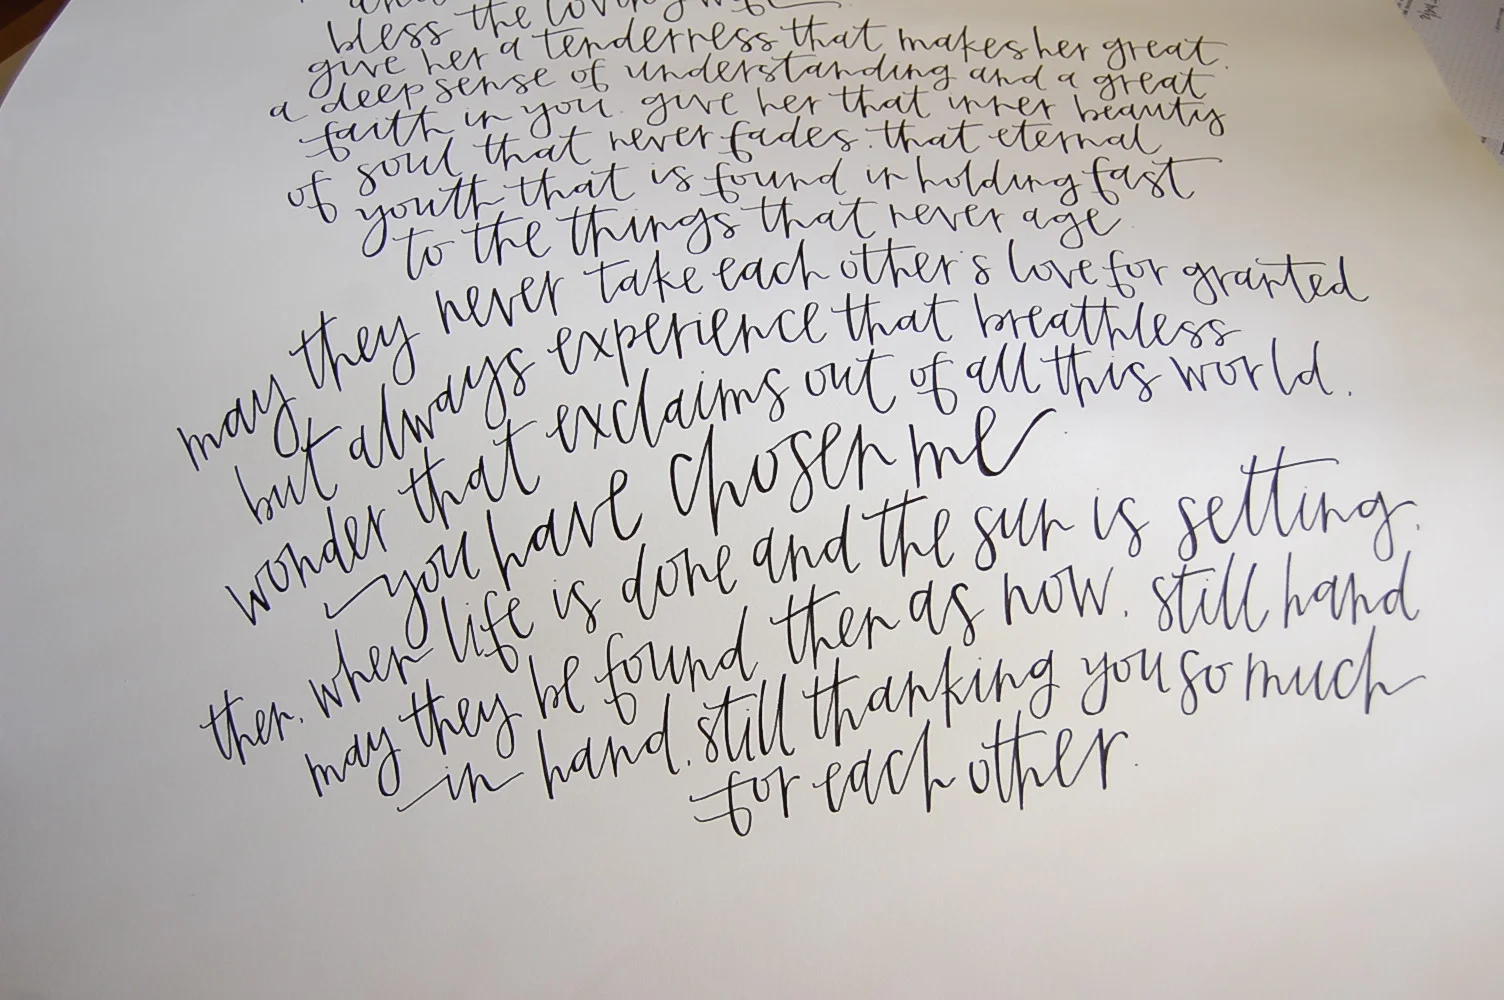 bless the loving wife
give her a tenderness that makes her great.
a deep sense of understanding and a great
faith in you. give her that inner beauty
of soul that never fades. that eternal
youth that is found in holding fast
to the things that never age
may they never take each other's love for granted
but always experience that breathless
wonder that exclaims out of all this world.
you have chosen me
then. when life is done and the sun is setting.
may they be found then as now. still hand
in hand. still thanking you so much
for each other.